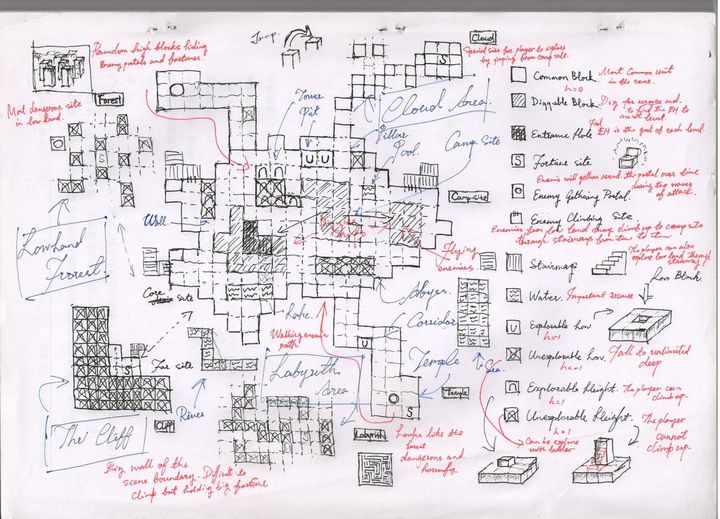 Jump
Cloud
Special site for player to explore
by jumping from camp site.
Random high blocks hiding
Enemy portals and fortunes.
Most dangerous site
in low land.
Forest
Tower
Pit
Pillar
Pool
Cloud Area
Camp Site
Camp site
Wall
Lowland
Forest
Core
site
Lake
Walking enemy
path
Flying
enemies
Abyss
Corridor
Temple
Temple
Sea
The Cliff
Cliff
Big wall of the
scene boundary. Difficult to
climb but holding big fortune
River
Labyrinth
Area
Labyrinth
Looks like the
forest
dangerous and
Common Block.
h=0
Most Common unit
in the scene.
Diggable Block.
to find the EH to
next level.
Entrance Hole
EH is the goal of each level.
Fortune site
Enemy Gathering Portal.
Enemies will gather around the portal over time
during the waves
of attack.
Enemy Climbing Site
Enemies from low land may climb up to camp site
through stairways from time to time
Stairway
The player can also
explore low land through
stairway
Low Block.
Water.
Explorable Low
h=-1
Unexplorable Low.
h=-1
Fall to unlimited
deep
Explorable Height.
h=1
The player can
climb up.
Unexplorable Height.
h>1
Can be explore
with ladder
The player
cannot
climb up
S
S
S
S
U U
U
U